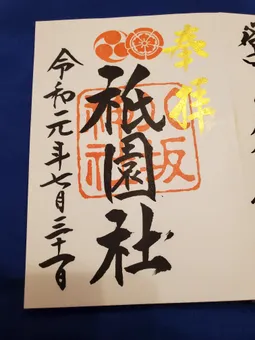 奉拝
八坂神社
祇園社
令和元年七月三十一日